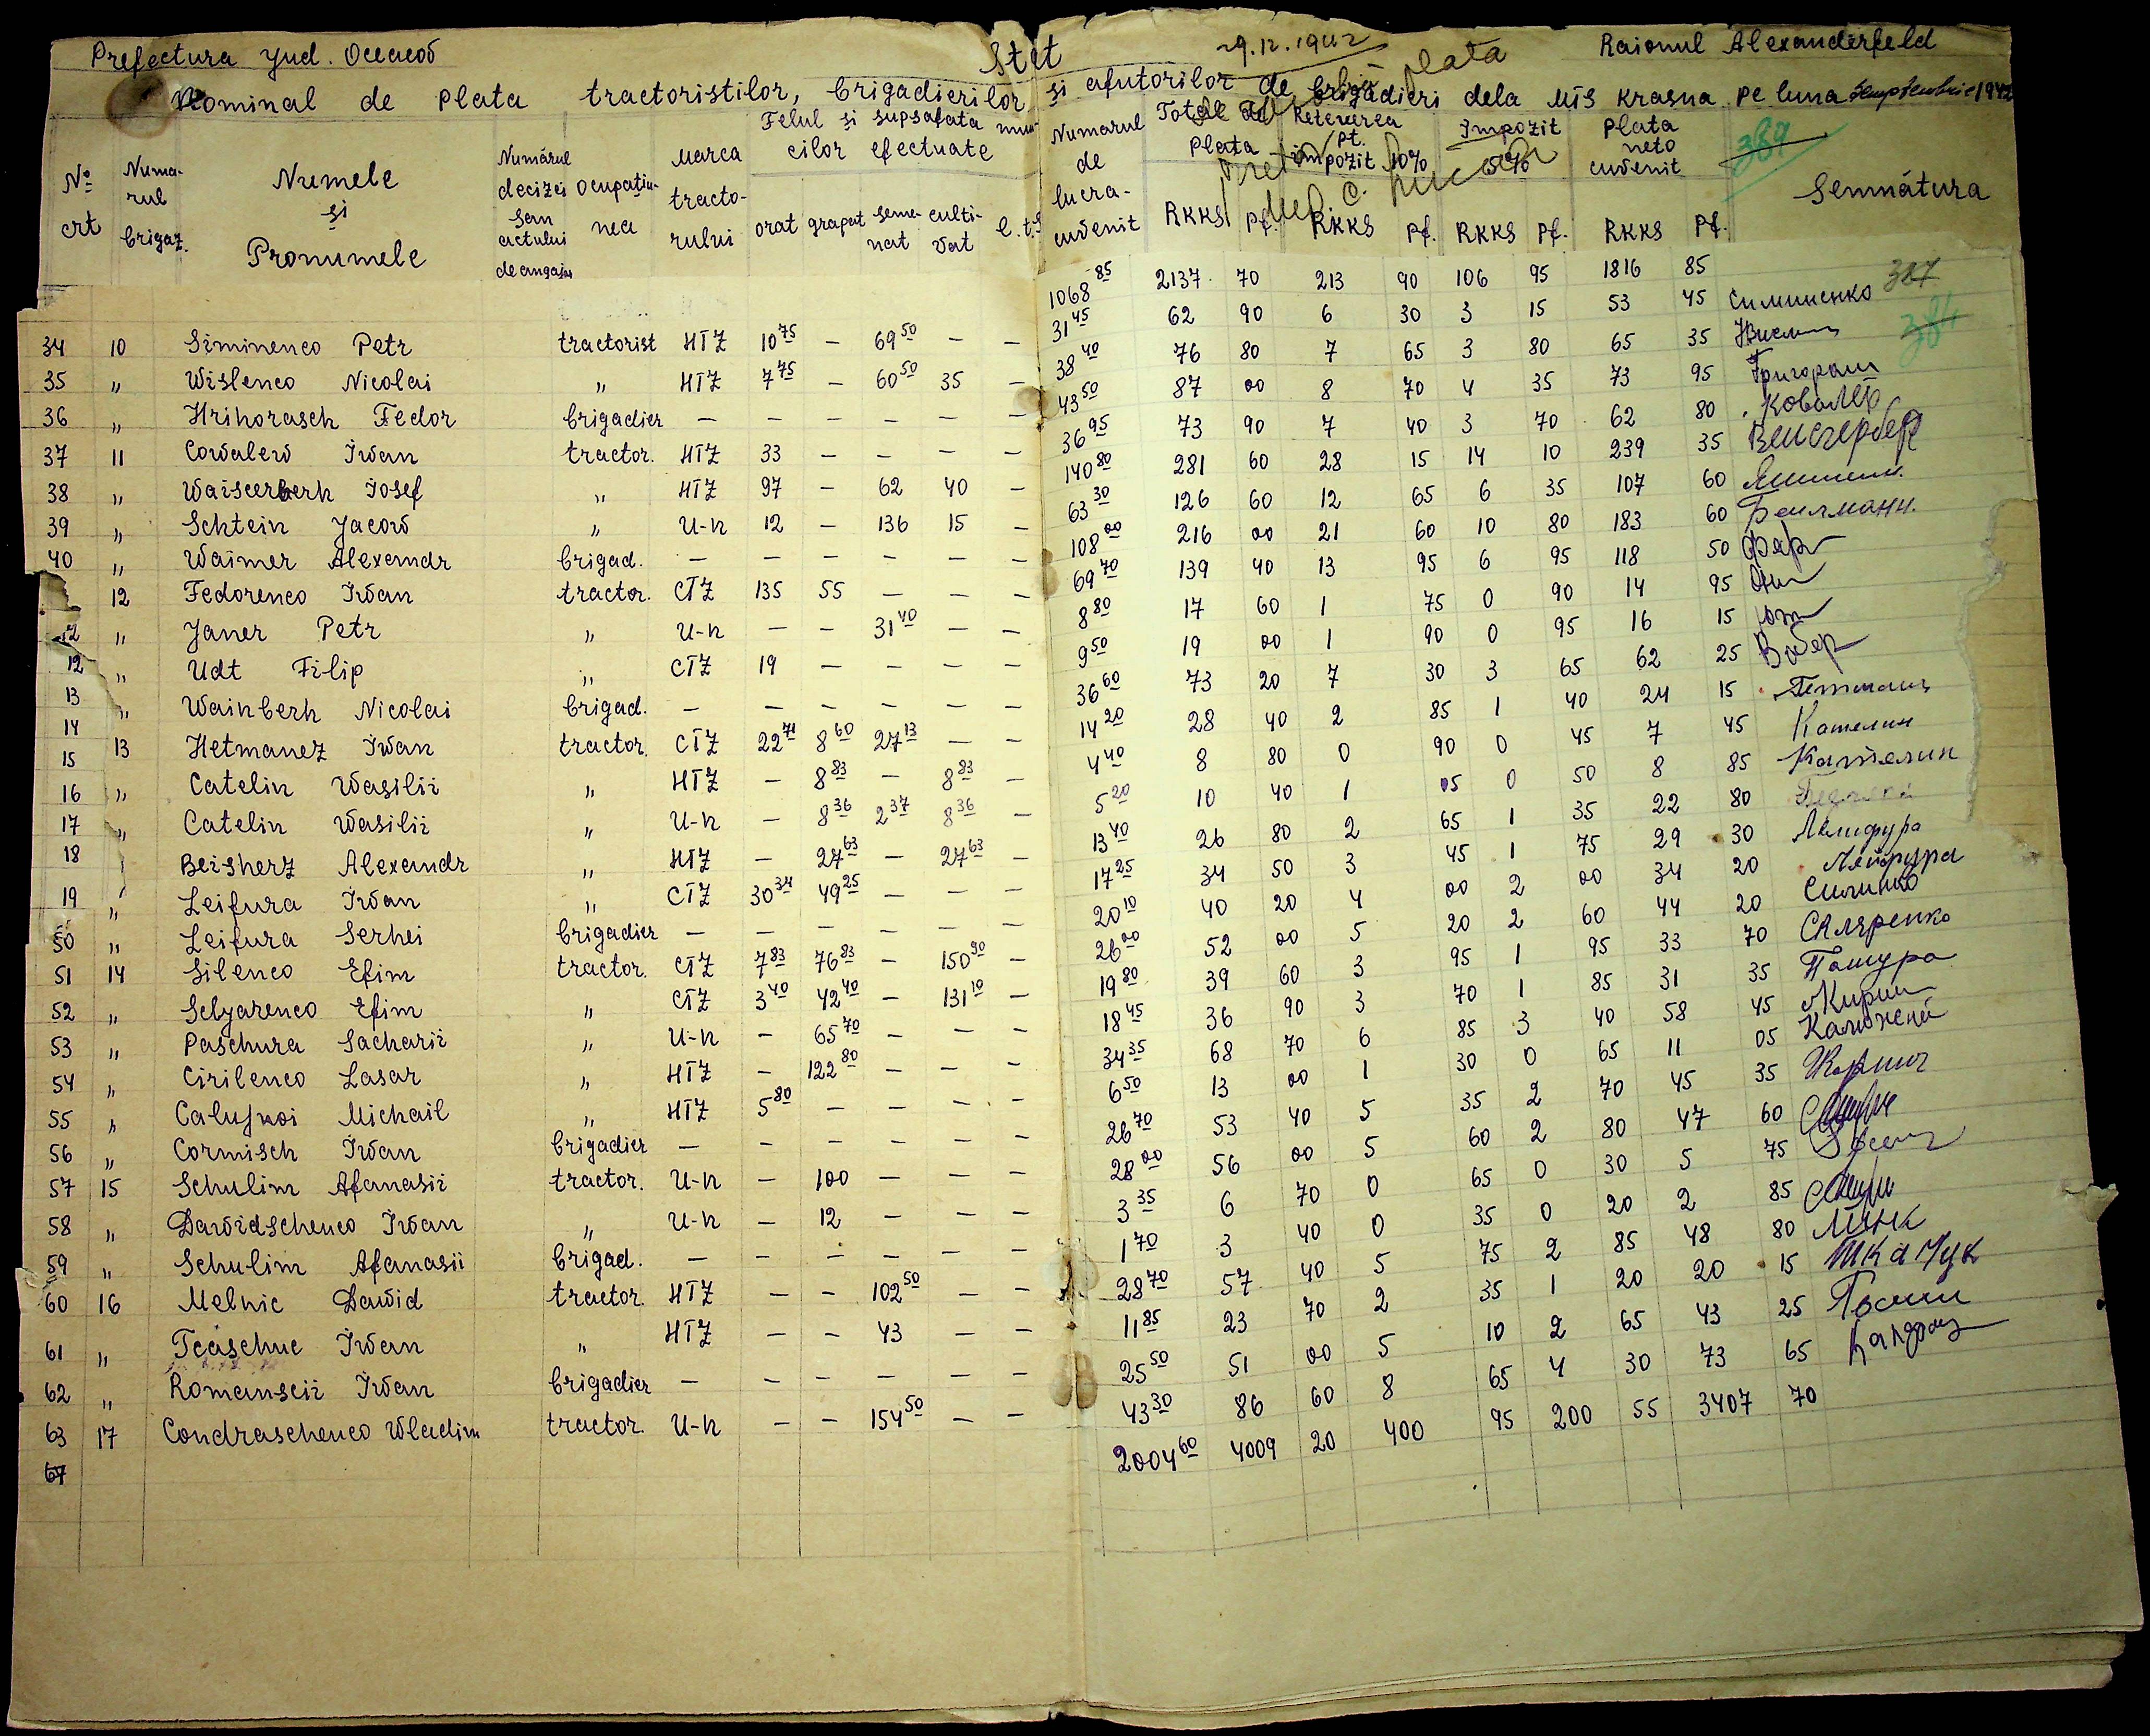 Prefectura Jud. Oceacov Raionul Alexanderfeld
Stat 29.12.1942 plata
Nominal de plata tractoristilor, brigadierilor și ajutorilor de brigadieri dela MTS Krasna pe luna Semptembrie 1942
№ crt Numarul brigaz. Numele și Pronumele Numărul decizei sau actului de angajare Ocupațiunea Marca tractorului Felul și supsafata muncilor efectuate orat grapat semenat cultivat e.t.s Numarul de lucra- cuvenit Total de plata RKKS Pf. Retenerea pt. impozit 10% RKKS Pf. Impozit 5% RKKS Pf. Plata neto cuvenit RKKS Pf. 387 Semnătura
1068 85 2137 70 213 90 106 95 1816 85 387
34 10 Siminenco Petr tractorist HTZ 10 75 — 69 50 — — 31 45 62 90 6 30 3 15 53 45 Симиненко
35 " Wislenco Nicolai " HTZ 7 75 — 60 50 35 — 38 40 76 80 7 65 3 80 65 35
36 " Hrihorasch Fedor brigadier — — — — — — 43 50 87 00 8 70 4 35 73 95 Григораш
37 11 Covalew Iwan tractor. HTZ 33 — — — — 36 95 73 90 7 40 3 70 62 80 Ковалев
38 " Waiscerberh Iosef " HTZ 97 — 62 40 — 140 80 281 60 28 15 14 10 239 35 Вейсгербер
39 " Schtein Jacow " U-n 12 — 136 15 — 63 30 126 60 12 65 6 35 107 60
40 " Waimer Alexandr brigad. — — — — — — 108 00 216 00 21 60 10 80 183 60
12 Fedorenco Iwan tractor. CTZ 135 55 — — — 69 70 139 40 13 95 6 95 118 50
12 " Janer Petr " U-n — — 31 40 — — 8 80 17 60 1 75 0 90 14 95
12 " Udt Filip " CTZ 19 — — — — 9 50 19 00 1 90 0 95 16 15
13 " Wainberh Nicolai brigad. — — — — — — 36 60 73 20 7 30 3 65 62 25
14 13 Hetmanez Iwan tractor. CTZ 22 71 8 60 27 13 — — 14 20 28 40 2 85 1 40 24 15
15 " Catelin Wasilii " HTZ — 8 83 — 8 83 — 4 40 8 80 0 90 0 45 7 45 Кателин
16 " Catelin Wasilii " U-n — 8 36 2 37 8 36 — 5 20 10 40 1 05 0 50 8 85 Кателин
17 " Beisherz Alexandr " HTZ — 27 63 — 27 63 — 13 40 26 80 2 65 1 35 22 80
18 " Leifura Iwan " CTZ 30 34 49 25 — — — 17 25 34 50 3 45 1 75 29 30 Лейфура
19 " Leifura Serhei brigadier — — — — — — 20 10 40 20 4 00 2 00 34 20 Лейфура
50 14 Silenco Efim tractor. CTZ 7 83 76 83 — 150 90 — 26 00 52 00 5 20 2 60 44 20 Силенко
51 " Sclyarenco Efim " CTZ 3 40 42 40 — 131 10 — 19 80 39 60 3 95 1 95 33 70 Скляренко
52 " Paschura Sacharii " U-n — 65 70 — — — 18 45 36 90 3 70 1 85 31 35 Пашура
53 " Cirilenco Lasar " HTZ — 122 80 — — — 34 35 68 70 6 85 3 40 58 45
54 " Calujnoi Michail " HTZ 5 80 — — — — 6 50 13 00 1 30 0 65 11 05 Калюжной
55 " Cormisch Iwan brigadier — — — — — — 26 70 53 40 5 35 2 70 45 35
56 15 Schulim Afanasii tractor. U-n — 100 — — — 28 00 56 00 5 60 2 80 47 60
57 " Dawidschenco Iwan " U-n — 12 — — — 3 35 6 70 0 65 0 30 5 75
58 " Schulim Afanasii brigad. — — — — — — 1 70 3 40 0 35 0 20 2 85
59 16 Melnic Dawid tractor. HTZ — — 102 50 — — 28 70 57 40 5 75 2 85 48 80
60 " Tcaschuc Iwan " HTZ — — 43 — — 11 85 23 70 2 35 1 20 20 15 ткачук
61 " Romanscii Iwan brigadier — — — — — — 25 50 51 00 5 10 2 65 43 25
62 17 Condraschenco Wladim tractor. U-n — — 154 50 — — 43 30 86 60 8 65 4 30 73 65
63 2004 60 4009 20 400 95 200 55 3407 70
64